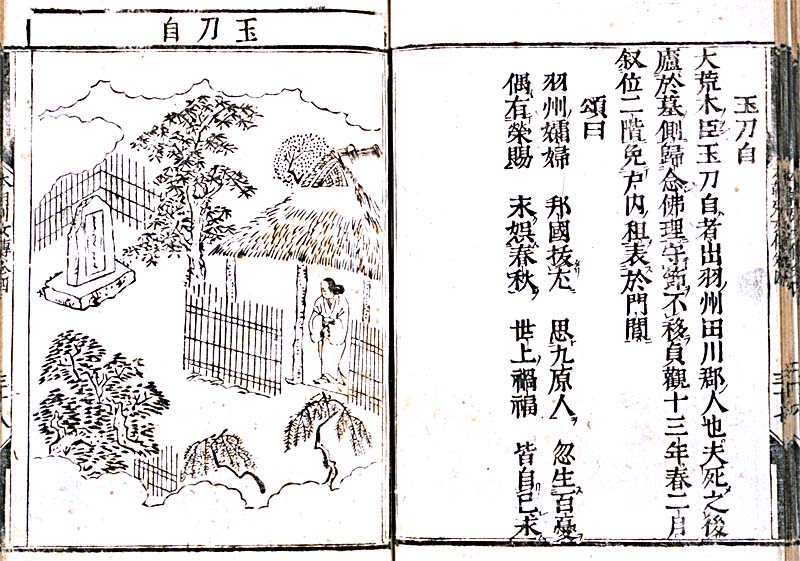 玉刀自
大荒木臣玉刀自者出羽州田川郡人也夫死之後
廬於墓側歸念佛理守節不移貞觀十三年春二月
叙位二階免戸内租表於門閭
頌曰
羽州孀婦 邦國拔尤 思九原人 忽生百憂
偶有榮賜 末娯春秋 世上禍福 皆自己求
玉刀自